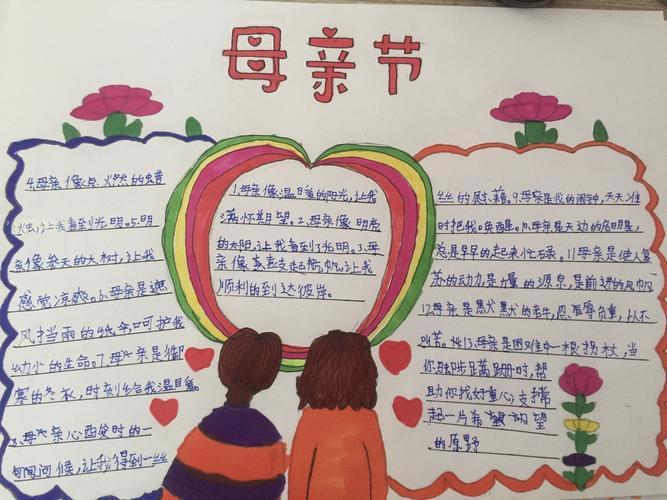 母亲节
1.母亲像温暖的阳光,让我
满怀期望。2.母亲像明亮
的太阳,让我看到了光明。3.母
亲像直支起帆,让我
顺利的到达彼岸。
4.母亲像点燃的蜡
烛,让我看到光明。5.母
亲像参天的大树,让我
感觉凉爽。6.母亲是遮
风挡雨的纸伞呵护我
幼小的生命。7.母亲是御
寒的冬衣,时刻给我温暖。
8.母亲心酸时的一
句问候,让我得到一丝
丝的慰藉。9.母亲是我的闹钟,天天准
时把我唤醒。10.母亲是天边的启明星,
总是早早的起来忙碌。11母亲是使人复
苏的动力,是力量的源泉,是前进的风帆
12.母亲是默默的老牛,忍辱负重,从不
叫苦。13.母亲是困难中一根拐杖,当
你脚步蹒跚时,帮
助你找好重心,支撑
起一片希望
的原野